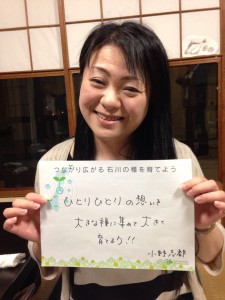 つながり広がる 石川の種を育てよう
ひとりひとりの想いを
大きな種に集めて 大きく
育てよう!!